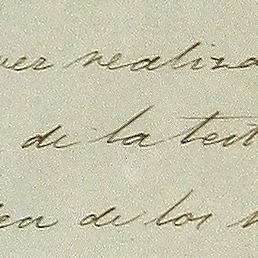 ver realiza
de la test
den de los